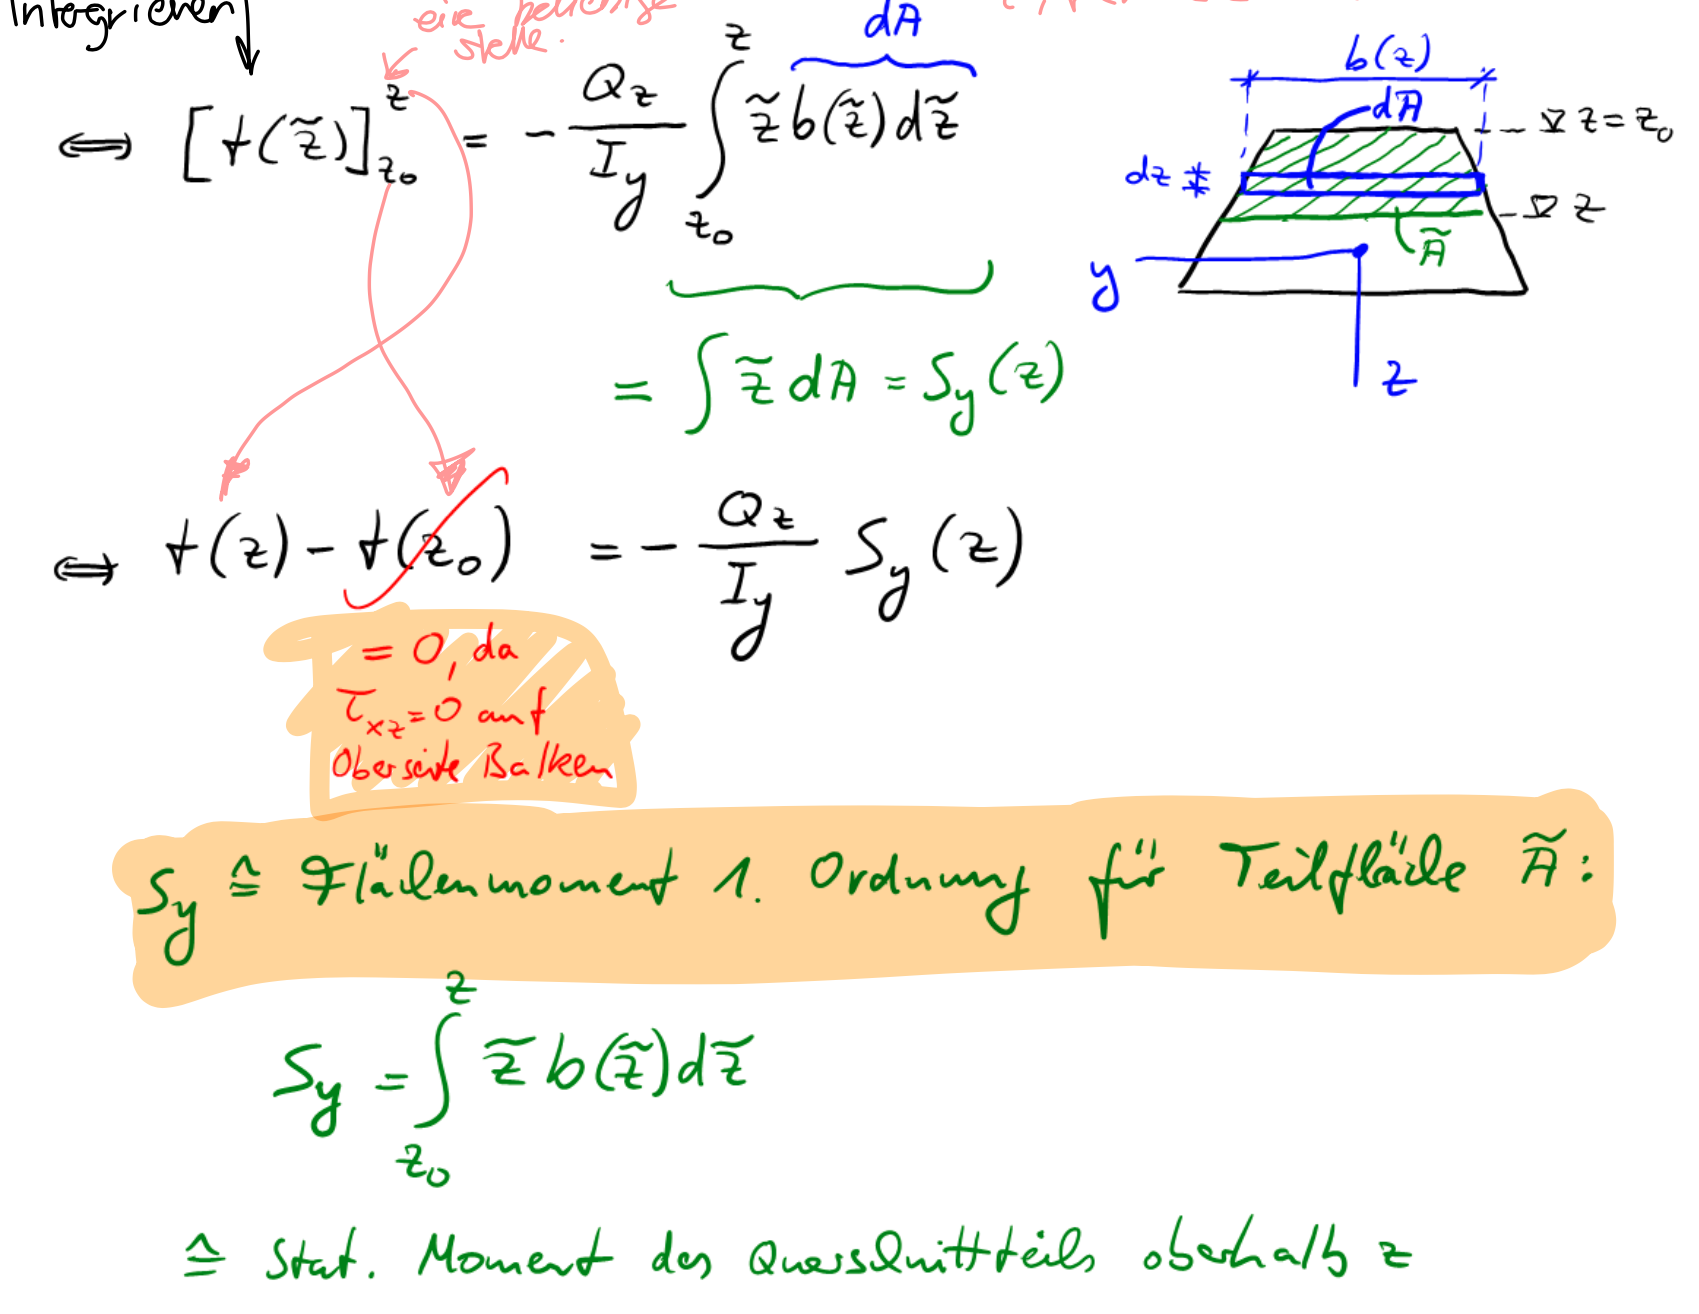 Integrieren
eine beliebige
stelle.
⟺ [t(z̃)]_{z₀}^{z} = - Q_z / I_y ∫_{z₀}^{z} z̃ b(z̃) dz̃
dA
b(z)
dA
∇ z = z₀
dz
∇ z
Ã
y
z
= ∫ z̃ dA = S_y (z)
⟺ t(z) - t(z₀) = - Q_z / I_y S_y (z)
= 0, da
τ_xz = 0 auf
Oberseite Balken
S_y ≙ Flächenmoment 1. Ordnung für Teilfläche Ã:
S_y = ∫_{z₀}^{z} z̃ b(z̃) dz̃
≙ Stat. Moment des Querschnittteils oberhalb z